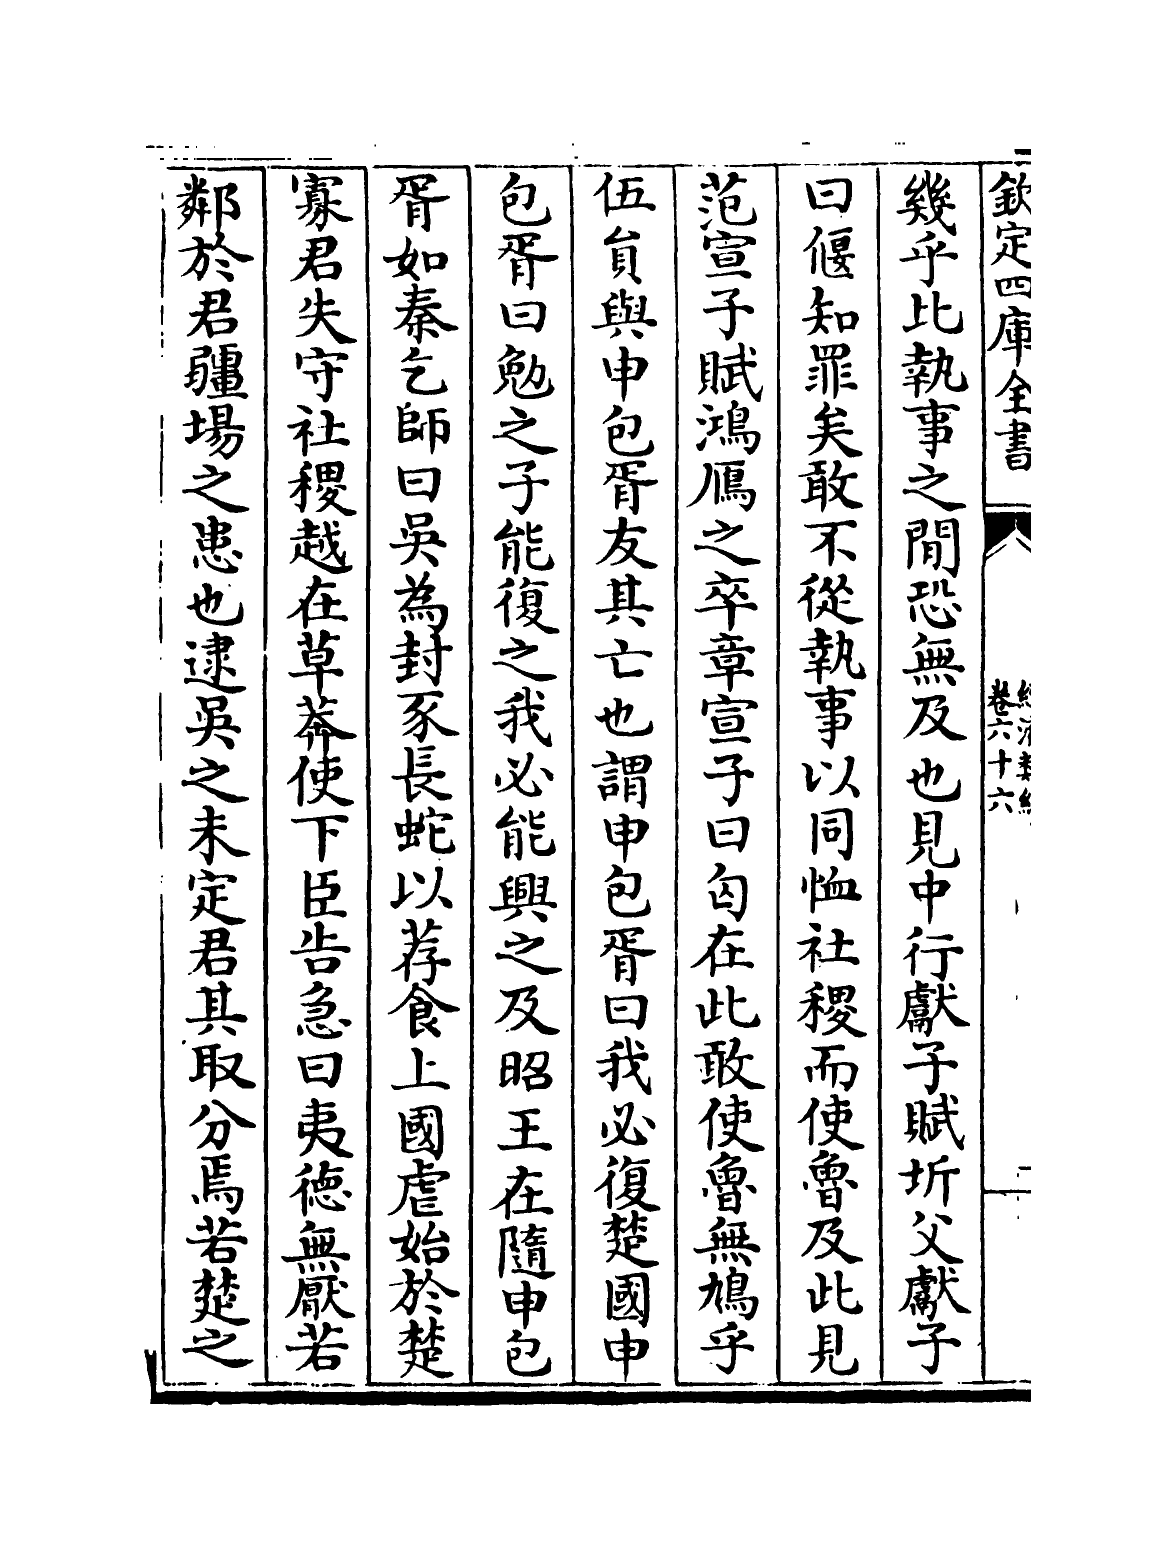 欽定四庫全書
經濟類編
卷六十六
幾乎比執事之閒恐無及也見中行獻子賦圻父獻子
曰偃知罪矣敢不從執事以同恤社稷而使魯及此見
范宣子賦鴻鴈之卒章宣子曰匄在此敢使魯無鳩乎
伍員與申包胥友其亡也謂申包胥曰我必復楚國申
包胥曰勉之子能復之我必能興之及昭王在隨申包
胥如秦乞師曰吳為封豕長蛇以荐食上國虐始於楚
寡君失守社稷越在草莽使下臣告急曰夷徳無厭若
鄰於君疆埸之患也逮吳之未定君其取分焉若楚之